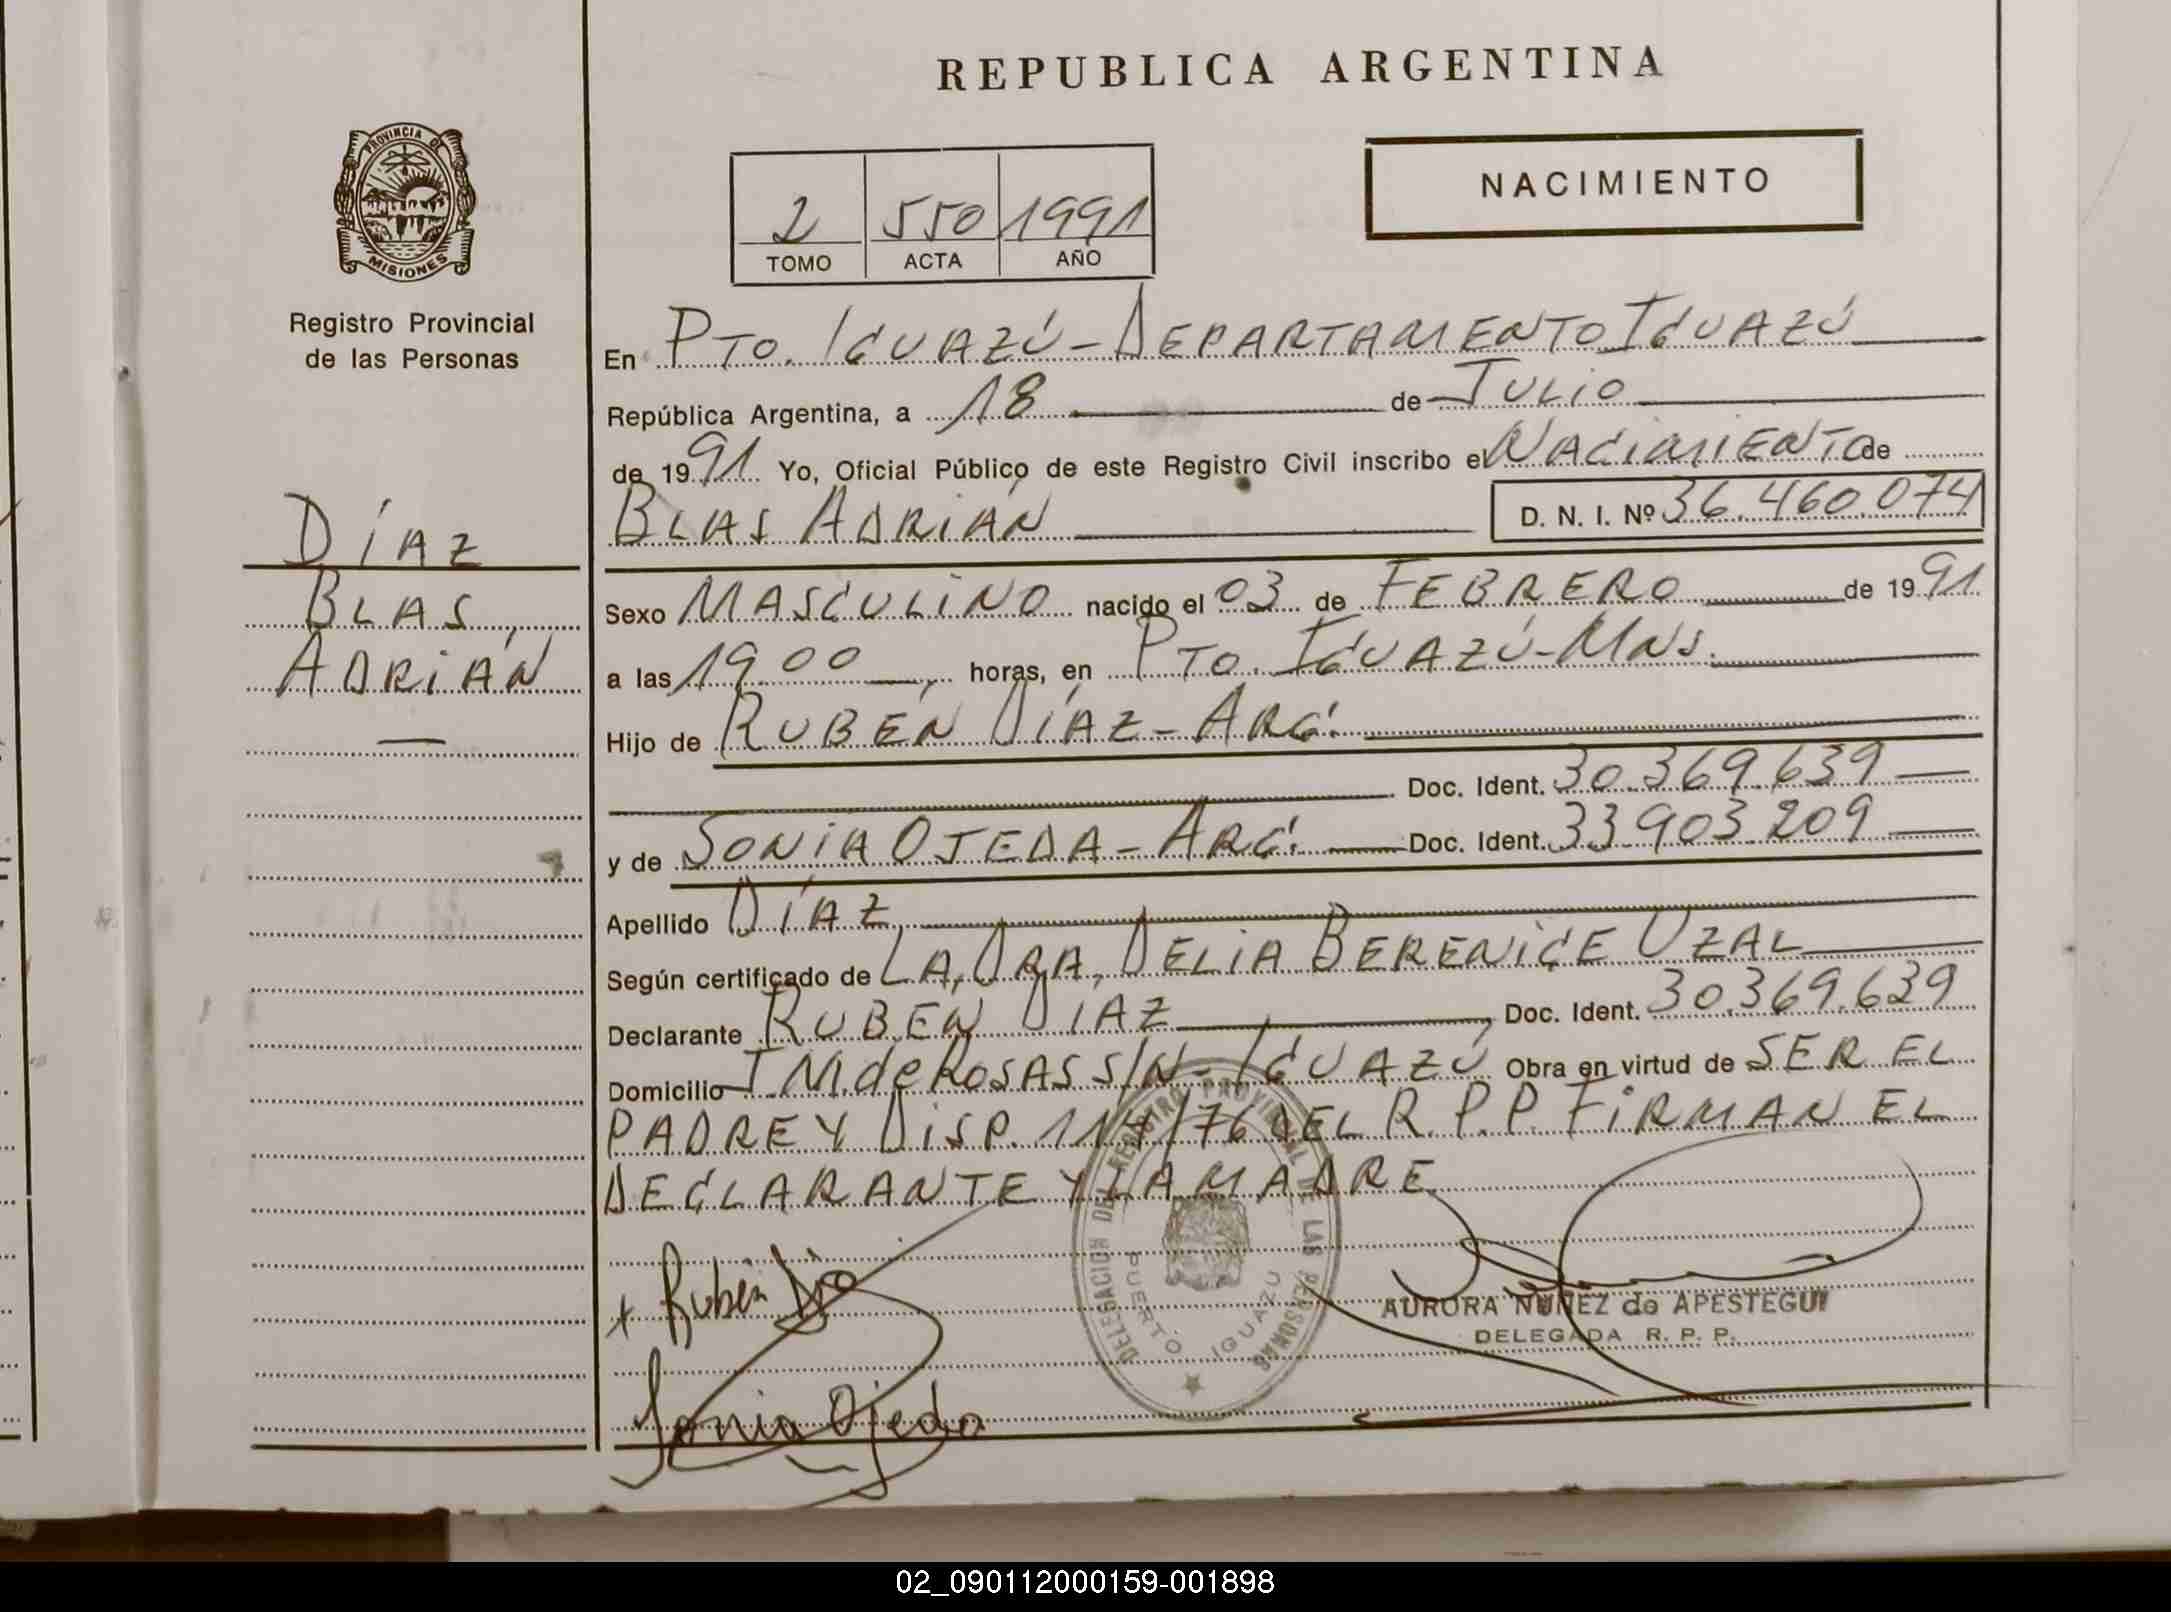 REPUBLICA ARGENTINA
NACIMIENTO
2 550 1991
TOMO ACTA AÑO
PROVINCIA DE
MISIONES
Registro Provincial
de las Personas
DÍAZ
BLAS,
ADRIÁN
En PTO. IGUAZÚ - DEPARTAMENTO IGUAZÚ
República Argentina, a 18 de JULIO
de 1991 Yo, Oficial Público de este Registro Civil inscribo el NACIMIENTO de
BLAS ADRIÁN D. N. I. Nº 36.460.074
Sexo MASCULINO nacido el 03 de FEBRERO de 1991
a las 19.00, horas, en PTO. IGUAZÚ-MNS.
Hijo de RUBÉN DÍAZ - ARG.
Doc. Ident. 30.369.639
y de SONIA OJEDA - ARG. Doc. Ident. 33.903.209
Apellido DÍAZ
Según certificado de LA, DRA, DELIA BERENICE UZAL
Declarante RUBEN DIAZ, Doc. Ident. 30.369.639
Domicilio J M. de ROSAS S/N - IGUAZÚ Obra en virtud de SER EL
PADRE Y DISP. /76 DEL R. P. P. FIRMAN EL
DECLARANTE Y LA MADRE
DELEGACION DEL REGISTRO PROVINCIAL DE LAS PERSONAS
PUERTO IGUAZU
+ Rubén
AURORA NUÑEZ de APESTEGUI
DELEGADA R. P. P.
Sonia Ojeda
02_090112000159-001898